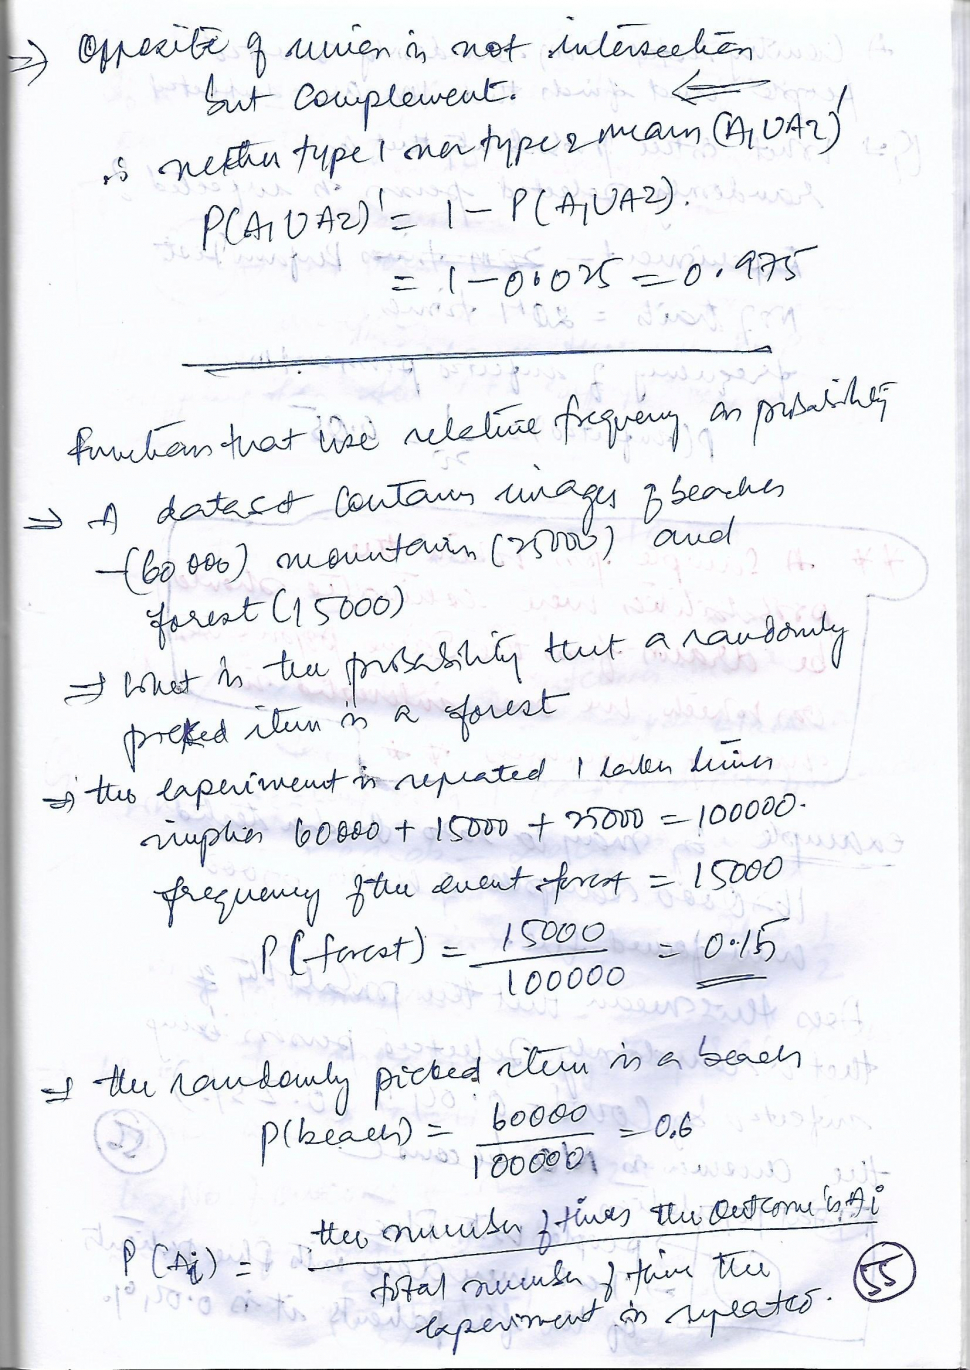 ⇒ Opposite of union is not intersection
but complement. ⇐
∴ neither type 1 nor type 2 means (A1UA2)'
P(A1UA2)' = 1 - P(A1UA2).
= 1 - 0.025 = 0.975
Functions that use relative frequency as probability
⇒ A dataset contains images of beaches
(60000) mountains (25000) and
forest (15000)
⇒ What is the probability that a randomly
picked item is a forest
⇒ the experiment is repeated 1 times
implies 60000 + 15000 + 25000 = 100000.
frequency of the event forest = 15000
P(forest) = 15000 / 100000 = 0.15
⇒ the randomly picked item is a beach
P(beach) = 60000 / 100000 = 0.6
P(Ai) = the number of times the outcome is Ai
total number of time the
experiment is repeated.
55